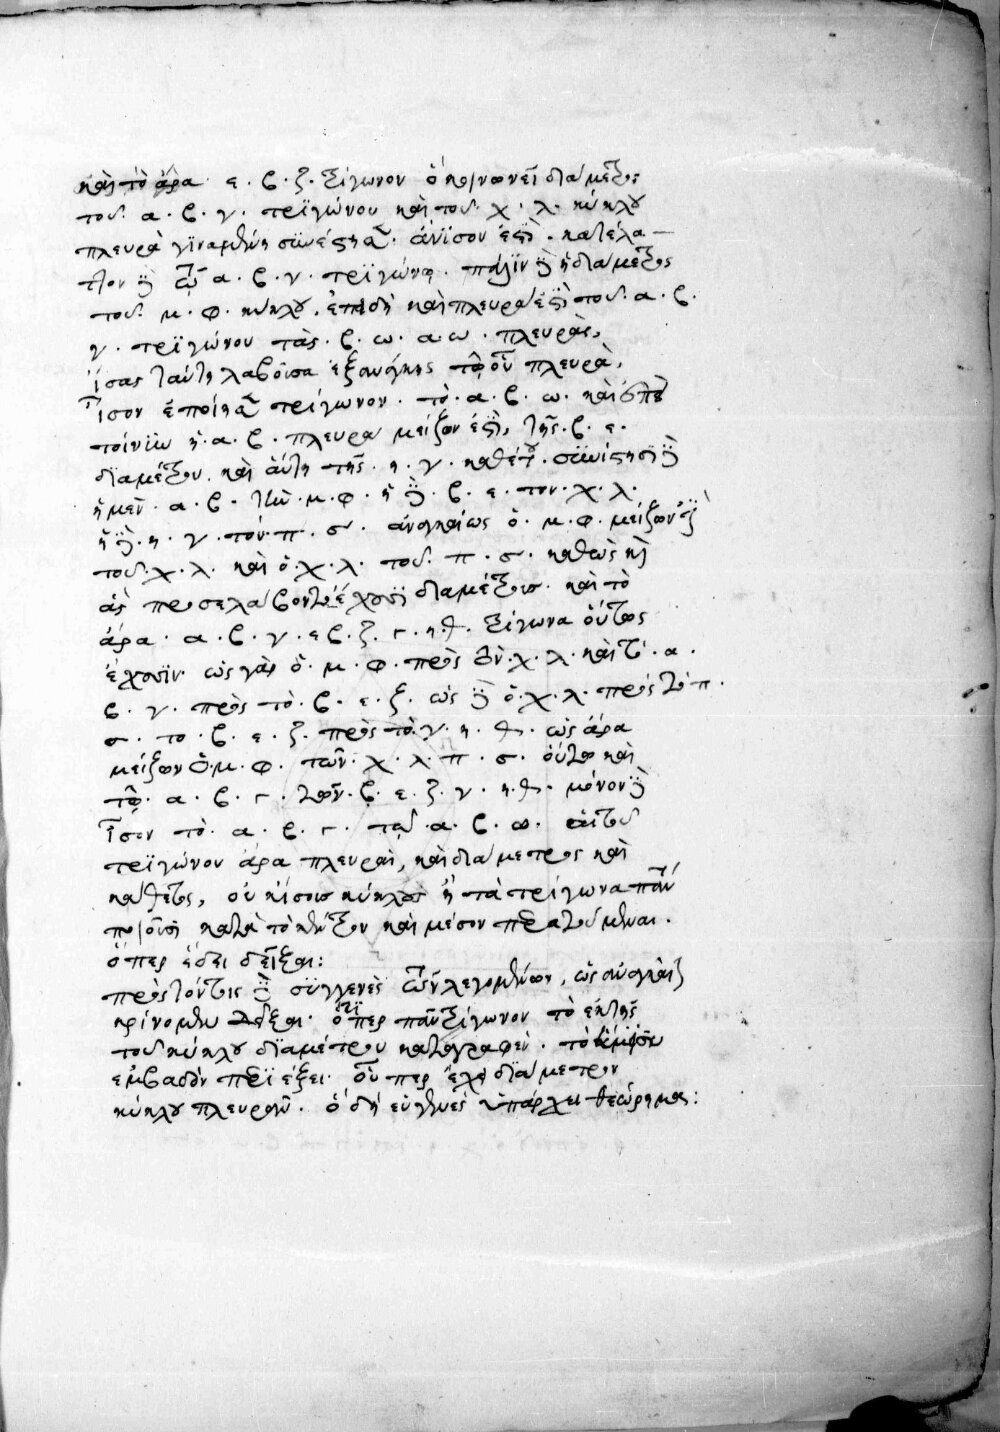 καὶ τὸ ἄρα ε. β. ζ. τρίγωνον ὃ κοινωνεῖ διαμέτρω:
τοῦ. α. β. γ. τριγώνου καὶ τοῦ. χ. λ. κύκλου
πλευρὰ γιναμένη συνέστησαν. ἄνισον ἐστὶ. κατέλα-
ττον δὲ τῶ α. β. γ. τριγώνω. πάλιν δὲ ἡ διάμετρος
τοῦ. μ. φ. κύκλου. ἐπειδὴ καὶ πλευρά ἐστὶ τοῦ. α. β.
γ. τριγώνου τὰς. β. ω. α. ω. πλευρὰς,
ἴσας ταύτη λαβοῦσα ἐξανάγκης πλευρὰ,
ἴσον ἐποίησαν τρίγωνον. τὸ. α. β. ω. καὶ
τοίνυν ἡ. α. β. πλευρὰ μείζων ἐστὶ, τῆς. β. ε.
διαμέτρου. καὶ αὕτη τῆς. η. γ. καθέτου. συνίστησι δὲ
ἡ μὲν. α. β. τὸν. μ. φ. ἡ δὲ. β. ε. τον. χ. λ.
ἡ δὲ. η. γ. τόν. π. σ. ἀναγκαίως ὁ. μ. φ. μείζων ἐστὶ
τοῦ. χ. λ. καὶ ὁ. χ. λ. τοῦ. π. σ. καθὼς καὶ
ἃς προσελάβοντο ἔχουσι διαμέτρους. καὶ τὸ
ἄρα. α. β. γ. ε β. ζ. γ. η. θ. τρίγωνα οὕτως
ἔχουσιν. ὡς γὰρ ὁ. μ. φ. πρὸς τὸν. χ. λ. καὶ τὸ. α.
β. γ. πρὸς τὸ. β. ε. ζ. ὡς δὲ ὁ. χ. λ. πρὸς τὸ π.
σ. το. β. ε. ζ. πρὸς τὸ. γ. η. θ. ὡς ἄρα
μείζων ὁ. μ. φ. τῶν. χ. λ. π. σ. οὕτω καὶ
τὸ. α. β. γ. τῶν. β. ε. ζ. γ. η. θ. μόνον δὲ
ἴσον τὸ. α. β. γ. τῷ. α. β. ω.
τριγώνον ἄρα πλευραὶ, καὶ διάμετρος καὶ
κάθετος, οὐκ ἴσους κύκλους ἢ τὰ τρίγωνα
ποιοῦσι κατὰ τὸ κέντρον καὶ μέσον
ὅπερ ἔδει δεῖξαι:
πρὸς τούτοις δὲ συγγενὲς τῶν λεγομένων, ὡς
κρίνομεν δεῖξαι. ὅτι περ πᾶν τρίγωνον τὸ ἐκ τῆς
τοῦ κύκλου διαμέτρου καταγραφὲν. τὸ ἥμισυ
ἐμβαδὸν περιέξει. οὗ περ ἔχει διάμετρον
κύκλου πλευρὰν. ὃ δὴ εὐφυὲς ὑπάρχει θεώρημα: